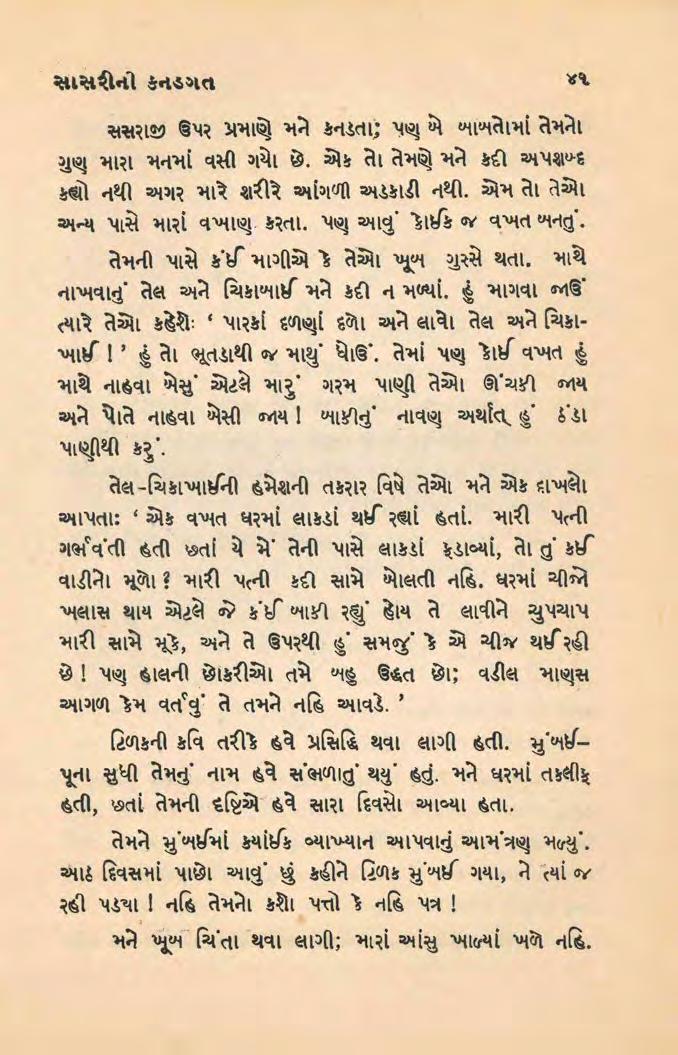 સાસરીની કનડગત ૪૧
સસરાજી ઉપર પ્રમાણે મને કનડતા; પણ બે બાબતોમાં તેમનો
ગુણ મારા મનમાં વસી ગયો છે. એક તો તેમણે મને કદી અપશબ્દ
કહ્યો નથી અગર મારે શરીરે આંગળી અડકાડી નથી. એમ તો તેઓ
અન્ય પાસે મારાં વખાણ કરતા. પણ આવું કોઈક જ વખત બનતું.
તેમની પાસે કંઈ માગીએ કે તેઓ ખૂબ ગુસ્સે થતા. માથે
નાખવાનું તેલ અને ચિકાખાઈ મને કદી ન મળ્યાં. હું માગવા જાઉં
ત્યારે તેઓ કહેશેઃ ‘ પારકાં દળણાં દળો અને લાવો તેલ અને ચિકા-
ખાઈ ! ’ હું તો ભૂતડાથી જ માથું ધોઉં. તેમાં પણ કોઈ વખત હું
માથે નાહવા બેસું એટલે મારું ગરમ પાણી તેઓ ઊંચકી જાય
અને પોતે નાહવા બેસી જાય ! બાકીનું નાવણ અર્થાત્ હું ઠંડા
પાણીથી કરું.
તેલ-ચિકાખાઈની હમેશની તકરાર વિષે તેઓ મને એક દાખલો
આપતાઃ ‘ એક વખત ઘરમાં લાકડાં થઈ રહ્યાં હતાં. મારી પત્ની
ગર્ભવંતી હતી છતાં યે મેં તેની પાસે લાકડાં ફડાવ્યાં, તો તું કઈ
વાડીનો મૂળો ? મારી પત્ની કદી સામે બોલતી નહિ. ઘરમાં ચીજો
ખલાસ થાય એટલે જે કંઈ બાકી રહ્યું હોય તે લાવીને ચુપચાપ
મારી સામે મૂકે, અને તે ઉપરથી હું સમજું કે એ ચીજ થઈ રહી
છે ! પણ હાલની છોકરીઓ તમે બહુ ઉદ્ધત છો; વડીલ માણસ
આગળ કેમ વર્તવું તે તમને નહિ આવડે. ’
ટિળકની કવિ તરીકે હવે પ્રસિદ્ધિ થવા લાગી હતી. મુંબઈ–
પૂના સુધી તેમનું નામ હવે સંભળાતું થયું હતું. મને ઘરમાં તકલીફ
હતી, છતાં તેમની દૃષ્ટિએ હવે સારા દિવસો આવ્યા હતા.
તેમને મુંબઈમાં ક્યાંઈક વ્યાખ્યાન આપવાનું આમંત્રણ મળ્યું.
આઠ દિવસમાં પાછો આવું છું કહીને ટિળક મુંબઈ ગયા, ને ત્યાં જ
રહી પડ્યા ! નહિ તેમનો કશો પત્તો કે નહિ પત્ર !
મને ખૂબ ચિંતા થવા લાગી; મારાં આંસુ ખાળ્યાં ખળે નહિ.